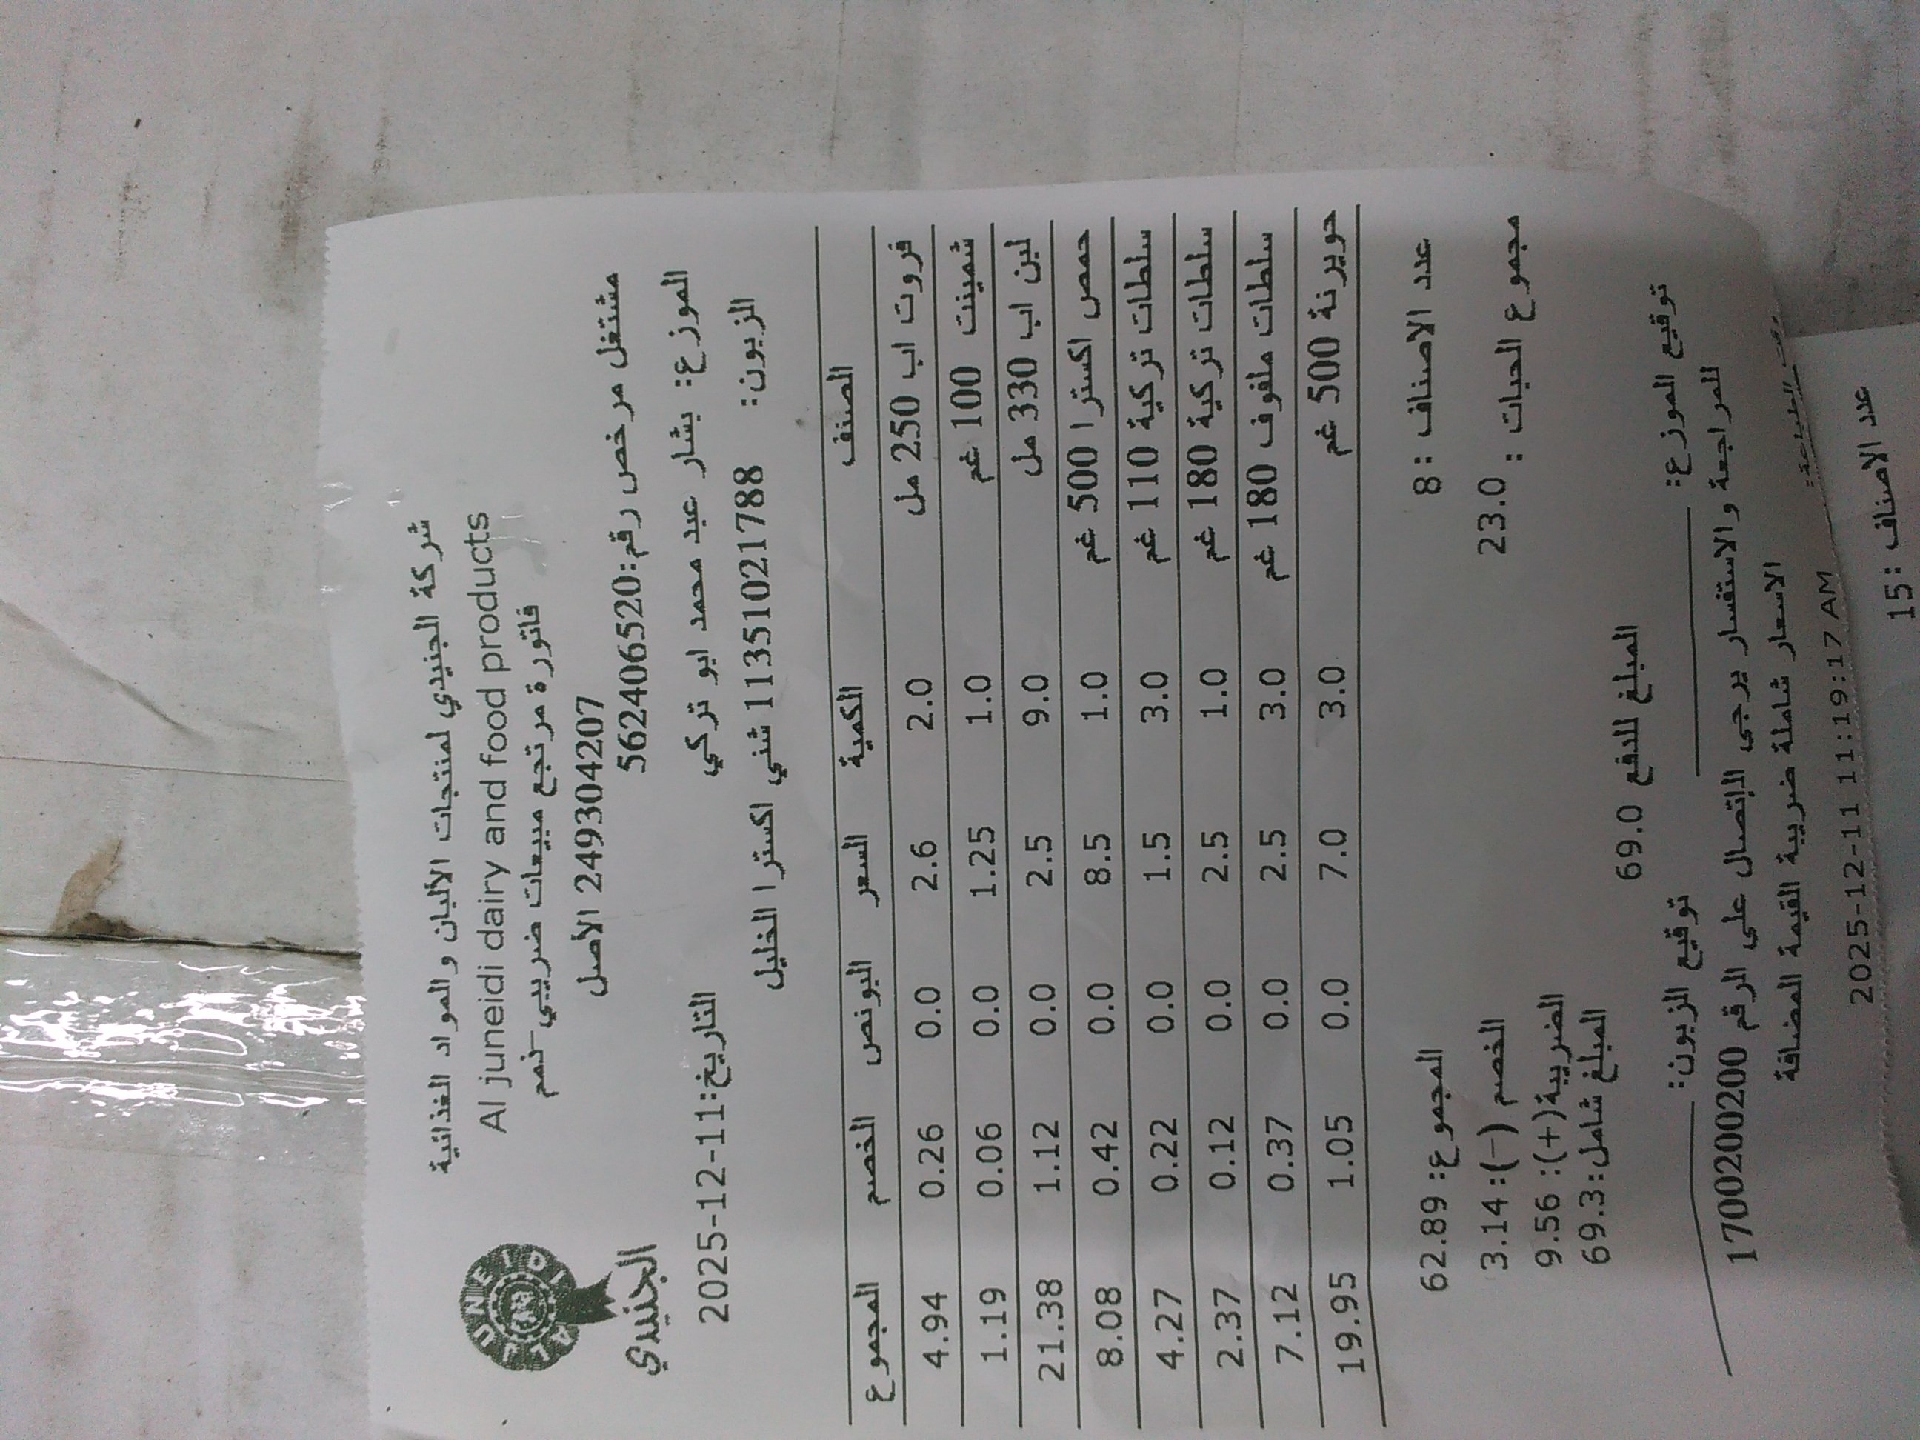 شركة الجنيدي لمنتجات الألبان والمواد الغذائية
Al juneidi dairy and food products
فاتورة مرتجع مبيعات ضريبي-ذمم
249304207 الأصل
مشتغل مرخص رقم:562406520
AL JUNEIDI
الجنيدي
الموزع: بشار عبد محمد ابو تركي التاريخ:2025-12-11
الزبون: 11351021788 شني اكسترا الخليل
الصنف الكمية السعر البونص الخصم المجموع
فروت اب 250 مل 2.0 2.6 0.0 0.26 4.94
شمينت 100 غم 1.0 1.25 0.0 0.06 1.19
لبن اب 330 مل 9.0 2.5 0.0 1.12 21.38
حمص اكسترا 500 غم 1.0 8.5 0.0 0.42 8.08
سلطات تركية 110 غم 3.0 1.5 0.0 0.22 4.27
سلطات تركية 180 غم 1.0 2.5 0.0 0.12 2.37
سلطات ملفوف 180 غم 3.0 2.5 0.0 0.37 7.12
حويرنة 500 غم 3.0 7.0 0.0 1.05 19.95
عدد الاصناف :8 المجموع: 62.89
مجموع الحبات : 23.0 الخصم (-):3.14
الضريبة(+): 9.56
المبلغ شامل:69.3
المبلغ للدفع 69.0
توقيع الموزع: توقيع الزبون:
للمراجعة والاستفسار يرجى الإتصال على الرقم 1700200200
الاسعار شاملة ضريبة القيمة المضافة
2025-12-11 11:19:17 AM
عدد الاصناف :15